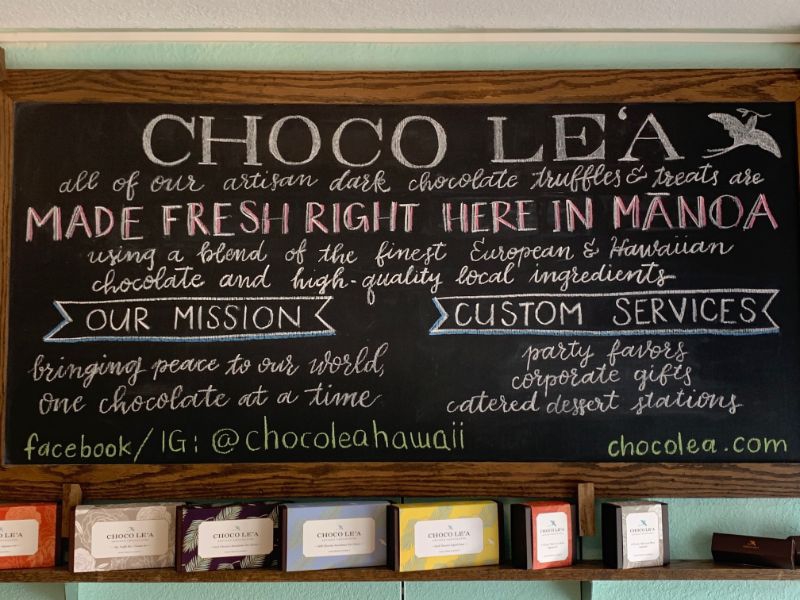 CHOCO LE‘A
all of our artisan dark chocolate truffles & treats are
MADE FRESH RIGHT HERE IN MĀNOA
using a blend of the finest European & Hawaiian
chocolate and high-quality local ingredients
OUR MISSION
bringing peace to our world,
one chocolate at a time
CUSTOM SERVICES
party favors
corporate gifts
catered dessert stations
facebook/IG: @chocoleahawaii
chocolea.com
CHOCO LE‘A
CHOCO LE‘A
CHOCO LE‘A
CHOCO LE‘A